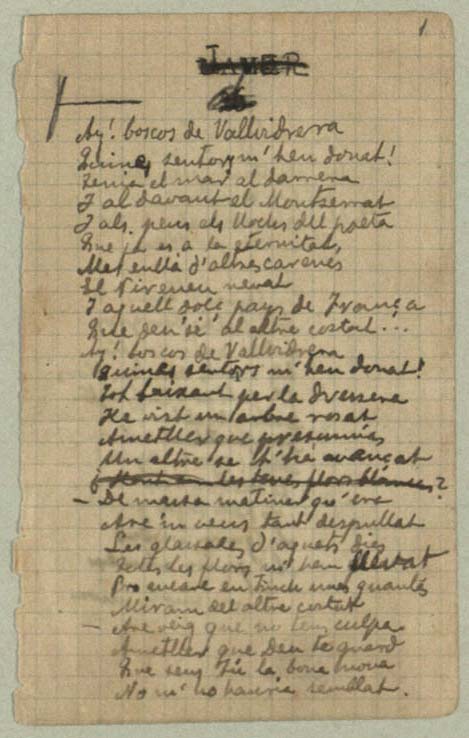 1
JANER
Ay! boscos de Vallvidrera
Quines sentors m'heu donat!
Tenia el mar al darrera
I al davant el Montserrat
I als peus els llochs del poeta
Que ja es a la eternitat,
Mes enllà d'altres carenes
El Pireneu nevat
I aquell dolç pays de França
Que deu sé al altre costat...
Ay! boscos de Vallvidrera
Quines sentors m'heu donat!
Tot baixant per la dressera
He vist un arbre rosat
Ametller que presumías
Un altre se t'ha avançat
les teves flors blanques?
- De massa matiner qu'era
Are 'm veus tant despullat
Les glassades d'aquets dies
Totes les flors m'han llevat
Pro encare en tinch unes quantes
Miram del altre costat
- Are veig que no tens culpa
Ametller que Deu te guard
Que sens tú la bona nova
No m' ho hauria semblat.